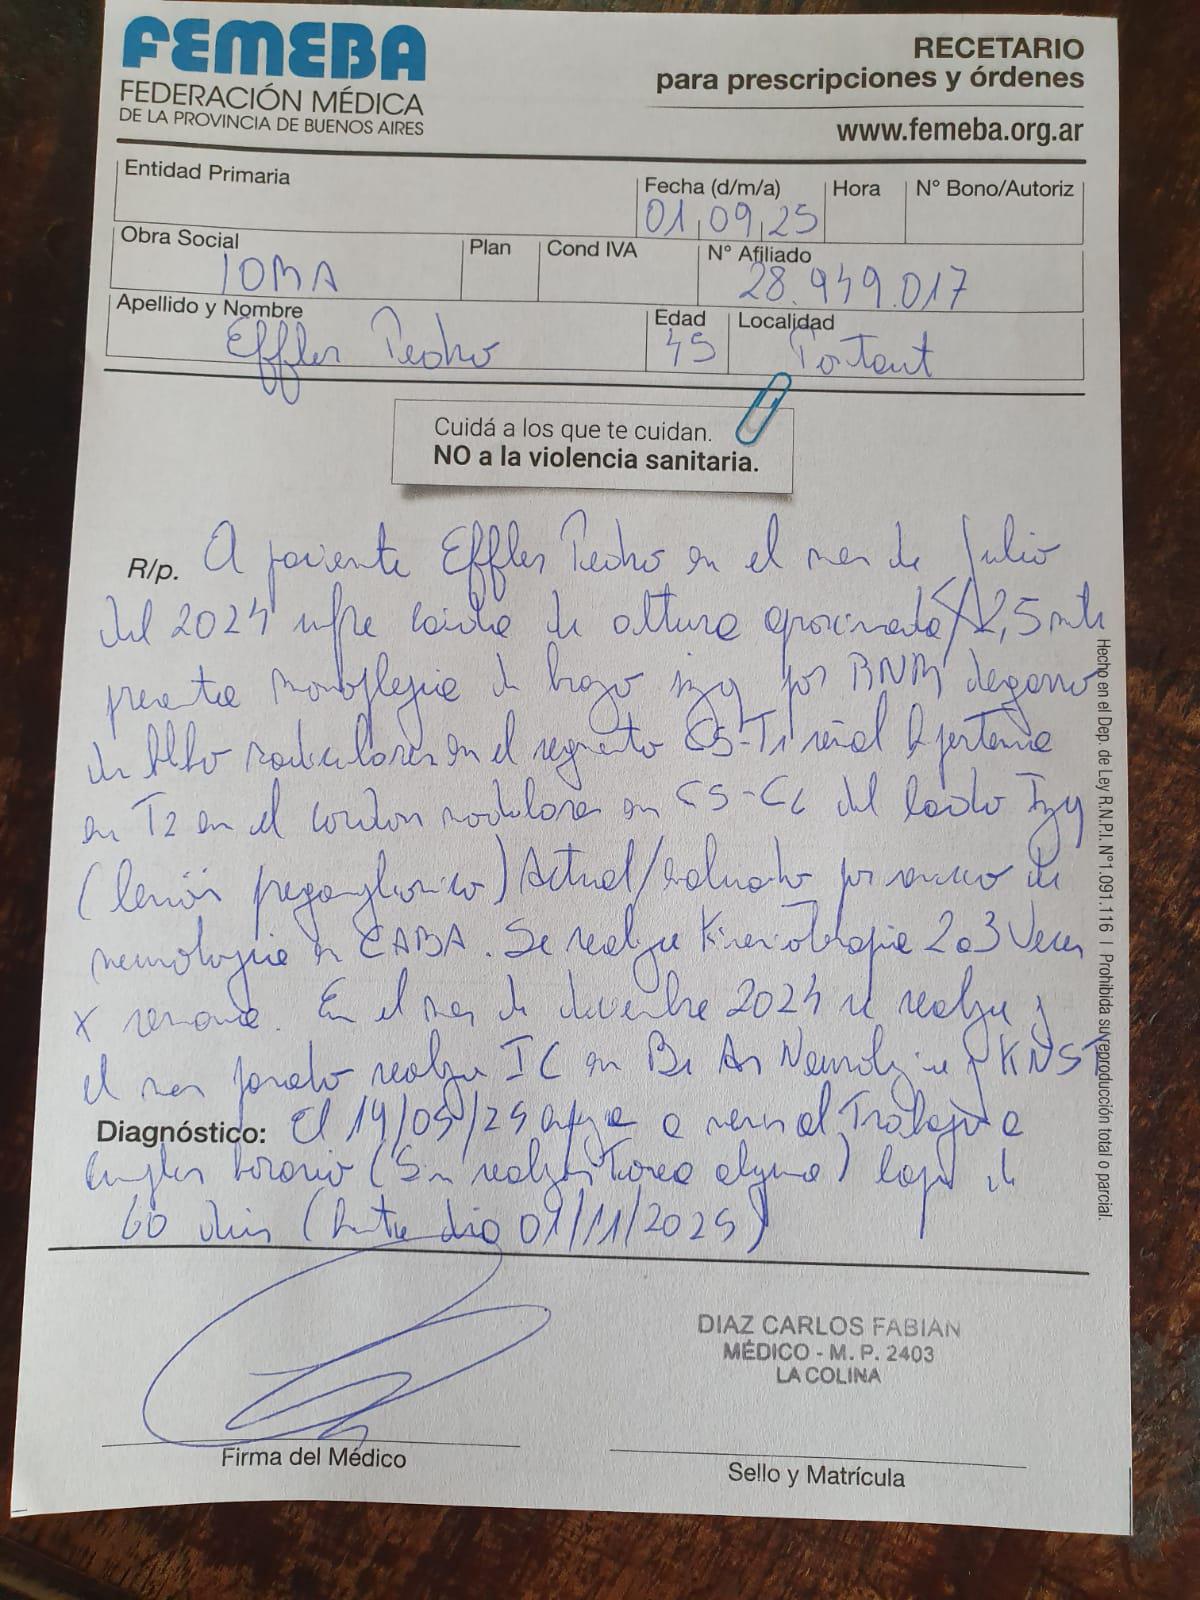 FEMEBA
FEDERACIÓN MÉDICA
DE LA PROVINCIA DE BUENOS AIRES
RECETARIO
para prescripciones y órdenes
www.femeba.org.ar
Entidad Primaria
Fecha (d/m/a) 01,09,25
Hora
N° Bono/Autoriz
Obra Social IOMA
Plan
Cond IVA
N° Afiliado 28.949.017
Apellido y Nombre Effler Pedro
Edad 45
Localidad
Cuidá a los que te cuidan.
NO a la violencia sanitaria.
R/p. A paciente Effler Pedro en el mes de Julio
del 2024 sufre caida de altura aproximada 2,5 mts
presenta monoplejia de brazo izq por RNM desgarro
de radiculares en el segmento C5-T1 señal
en T2 en el cordon medular en C5-C6 del lado Izq
(lesión preganglionica) Actual/evaluado por servicio de
neurologia en CABA. Se realiza Kinesioterapia 2 o 3 Veces
x semana. En el mes de diciembre 2024 se realiza y
el mes pasado realiza IC en Bs As Neurologia y KNST
Diagnóstico: El 19/05/25 a Trabajo a
cumplir horario (Sin realizar tarea alguna) lapso de
60 dias (hasta dia 01/11/2025)
Firma del Médico
DIAZ CARLOS FABIAN
MÉDICO - M. P. 2403
LA COLINA
Sello y Matrícula
Hecho en el Dep. de Ley R.N.P.I. N°1.091.116 | Prohibida su reproducción total o parcial.